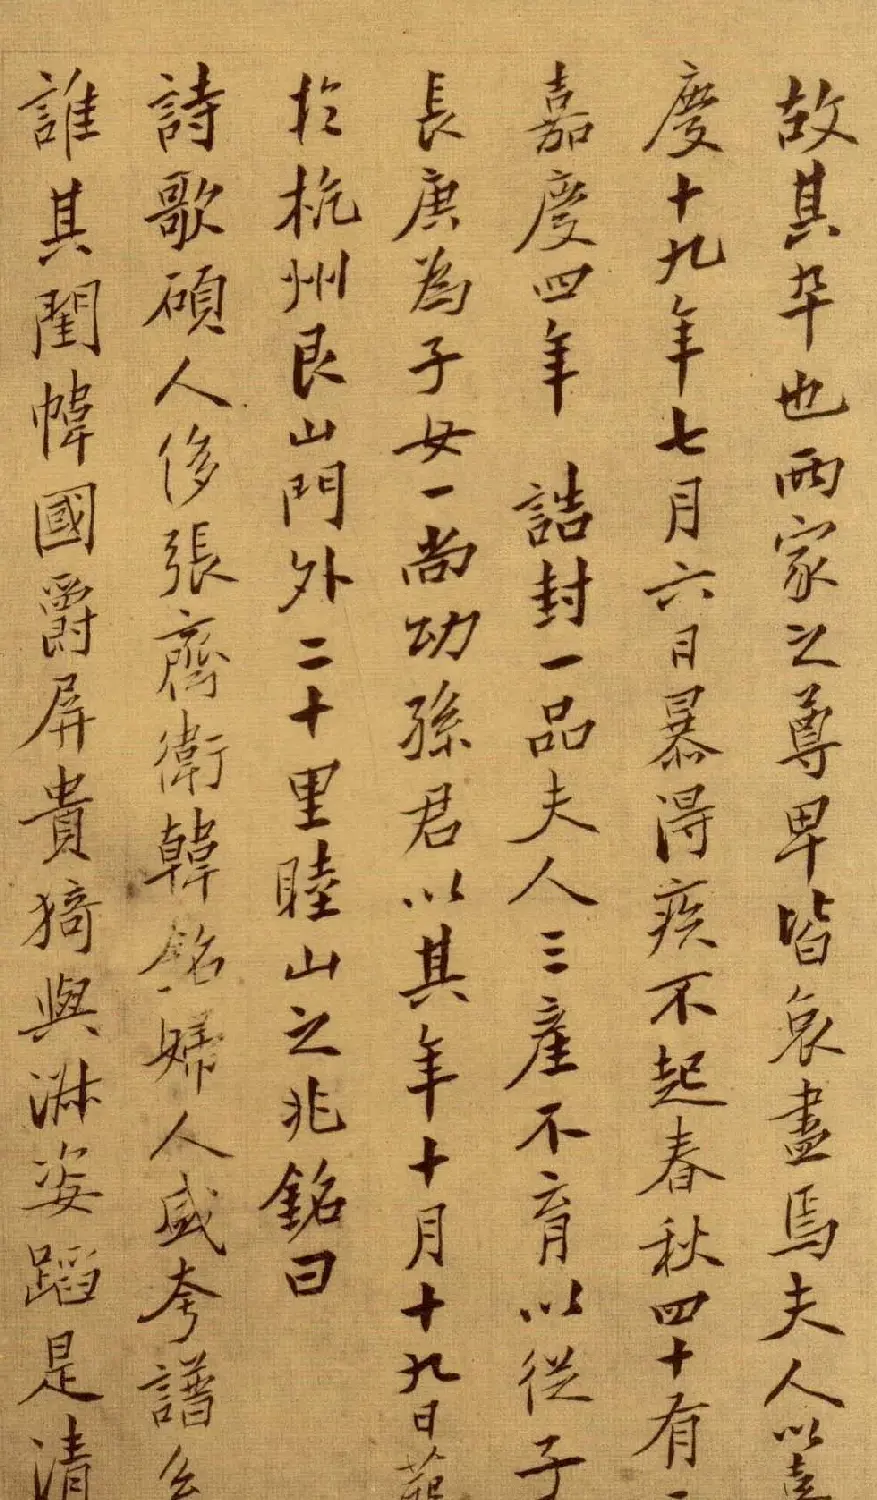 故其卒也兩家之尊卑皆哀盡焉夫人以嘉
慶十九年七月六日暴得疾不起春秋四十有
嘉慶四年 誥封一品夫人三產不育以從子
長庚為子女一尚幼孫君以其年十月十九日葬
於杭州艮山門外二十里睦山之兆銘曰
詩歌碩人侈張齊衛韓銘婦人盛夸譜系
誰其閨幃國爵屏貴猗與淋姿蹈是清